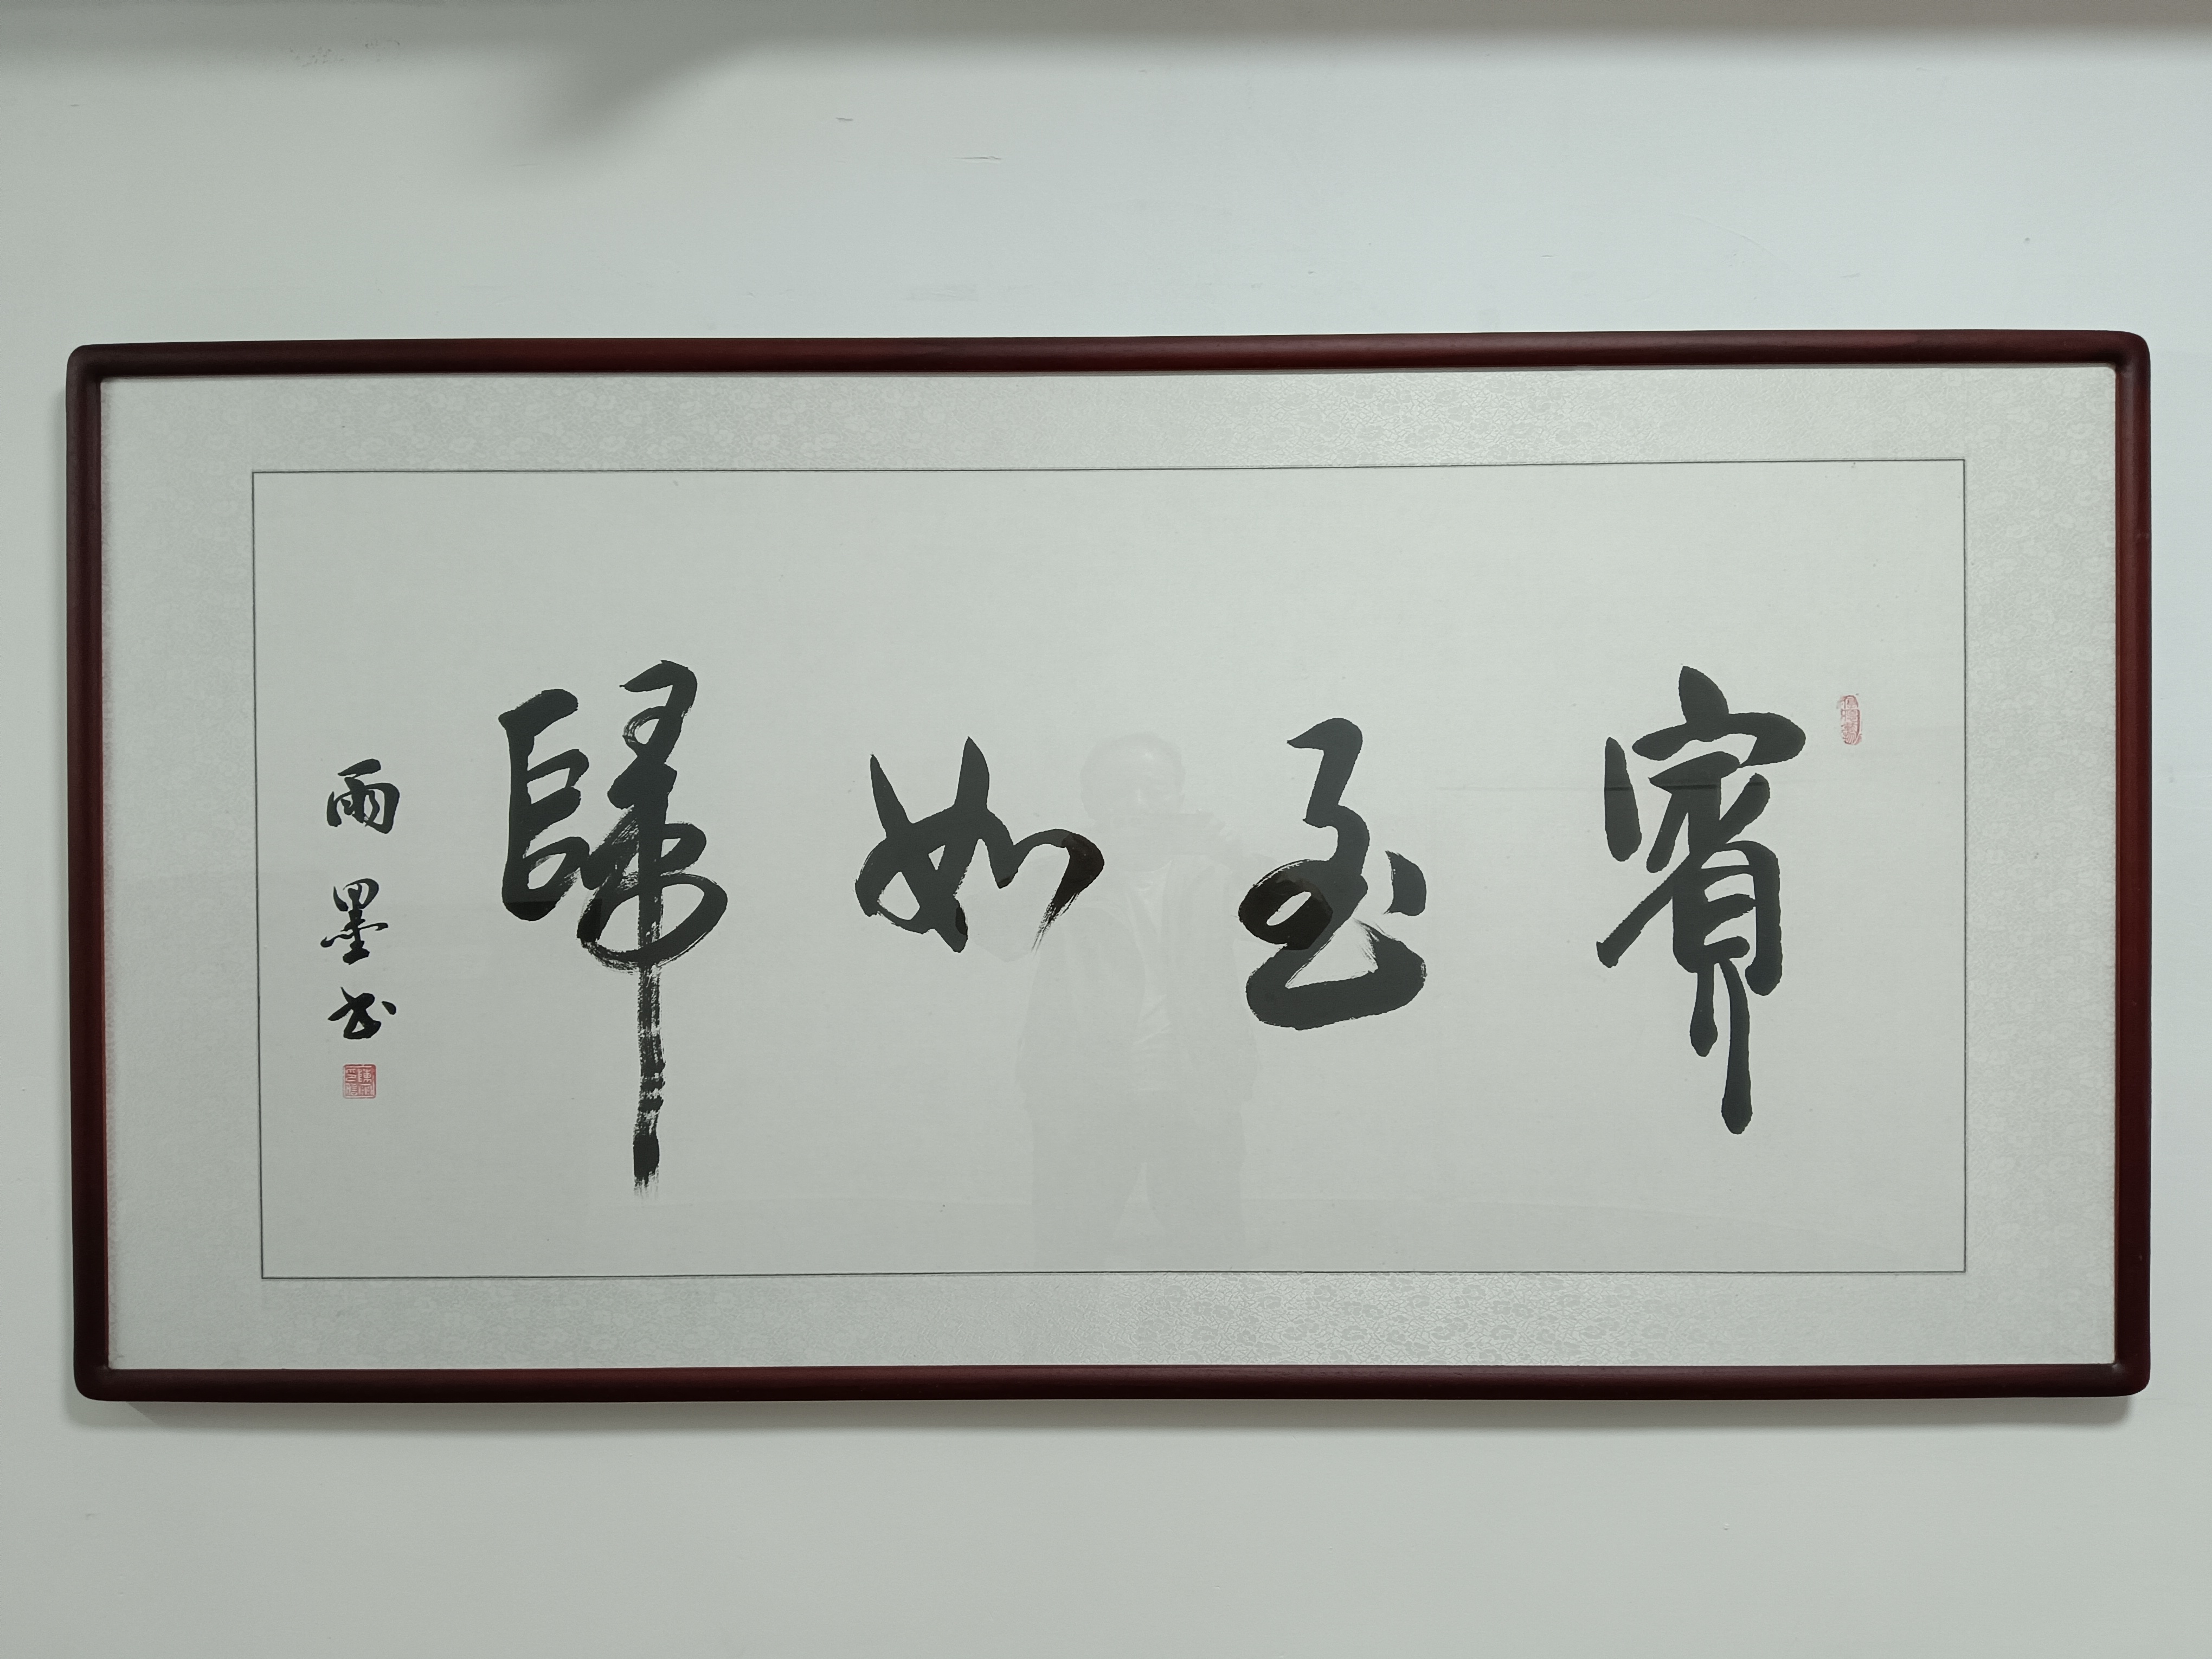 賓至如歸
雨墨书